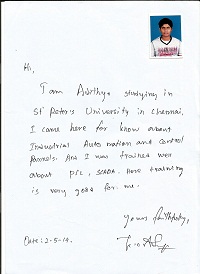 Hi,
I am Adithya studying in
St Peter's University in Chennai,
I came here for know about
Industrial Automation and control
Pannels. And I was trained well
about PLC, SCADA. Here training
is very good for me.
Yours faithfully,
Date: 2-5-14.